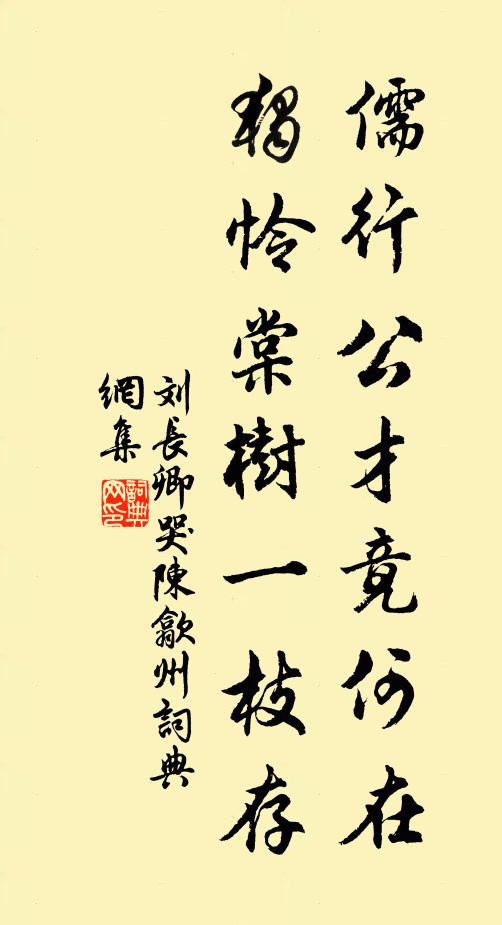 儒行公才竟何在
獨怜棠樹一枝存
刘長卿哭陳歙州詞典
網集
詞典
网印